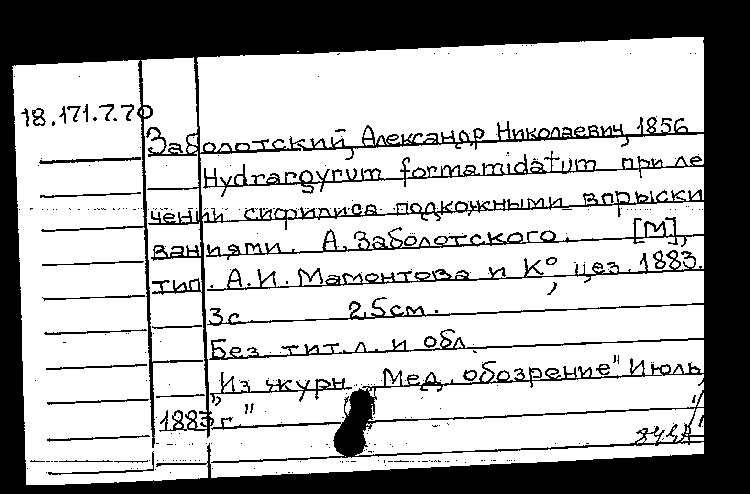 18.171.7.70
Заболотский, Александр Николаевич, 1856
Hydrargyrum formamidatum при ле
чении сифилиса подкожными впрыски
ваниями. А. Заболотского. [М],
тип. А.И. Мамонтова и К°, цез. 1883.
3с. 25см.
Без тит. л. и обл.
"Из журн. "Мед. обозрение" Июль
1883 г."